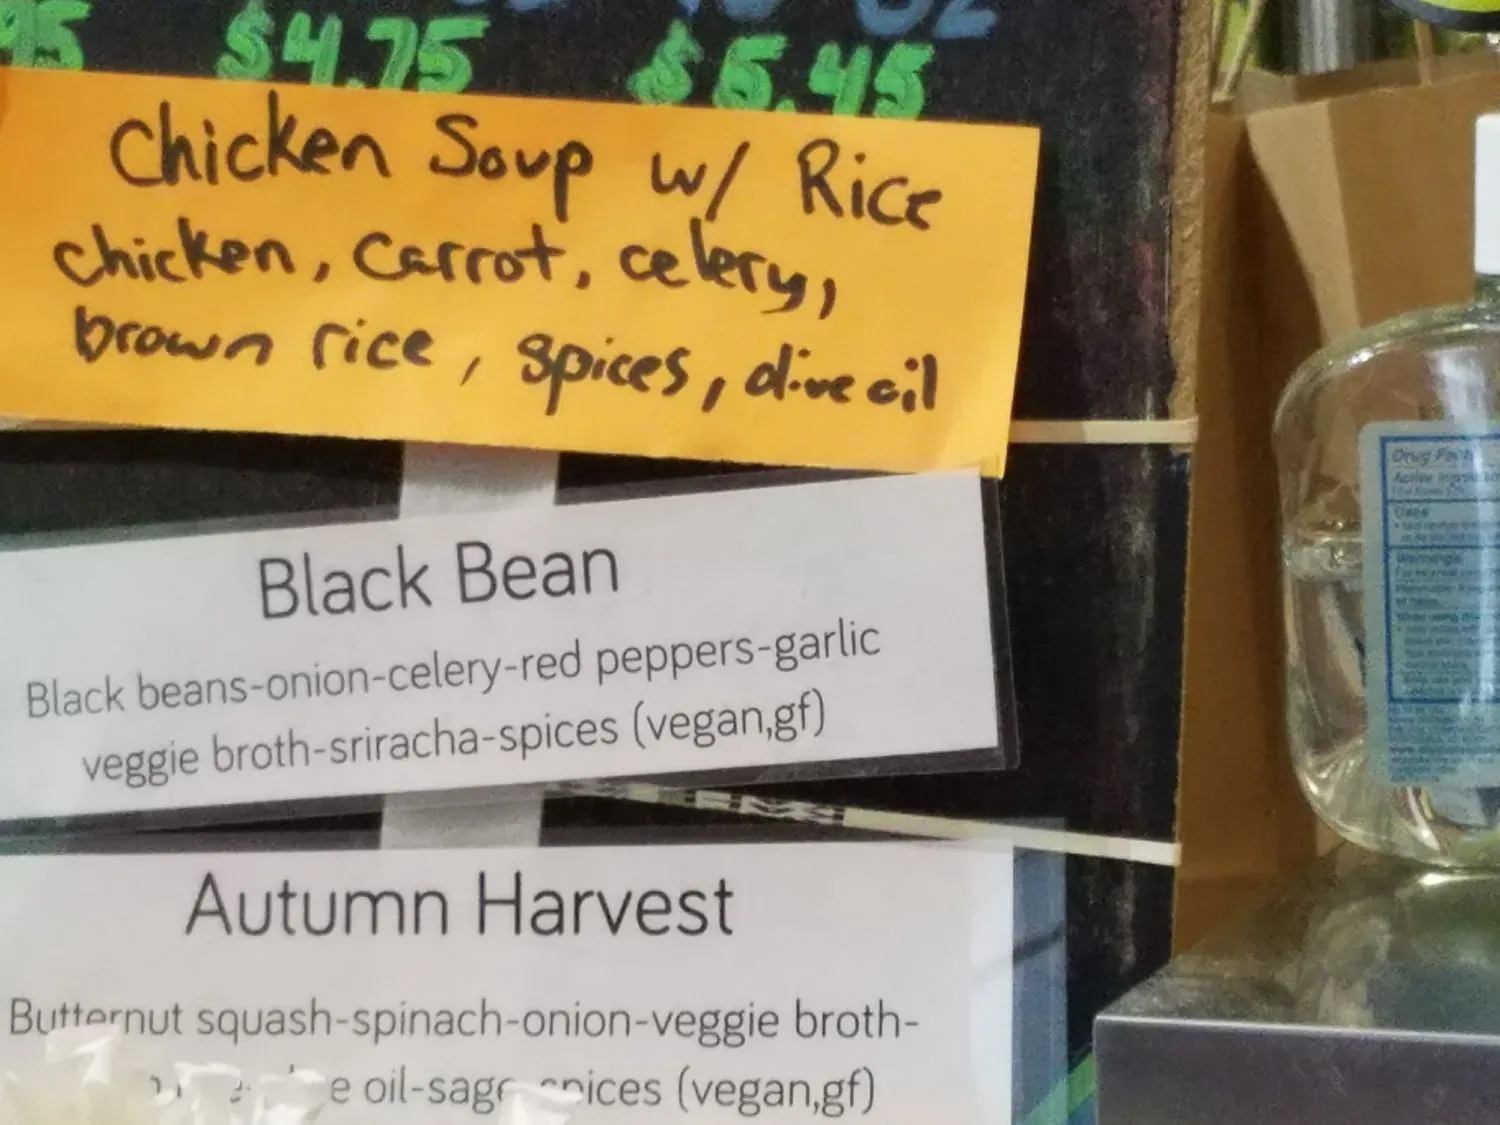 95 $4.75 $5.45
Chicken Soup w/ Rice
chicken, carrot, celery,
brown rice, spices, olive oil
Black Bean
Black beans-onion-celery-red peppers-garlic
veggie broth-sriracha-spices (vegan,gf)
Autumn Harvest
Butternut squash-spinach-onion-veggie broth-
oil-sage spices (vegan,gf)
Drug
Active
Uses
Warnings